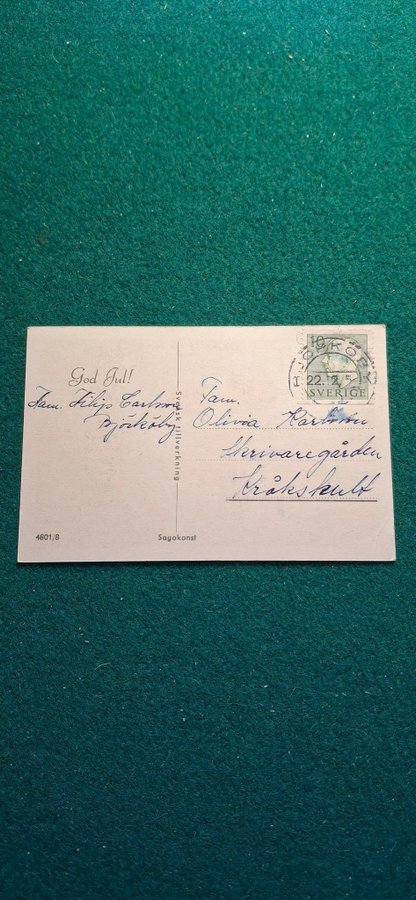 God Jul!
Fam. Filip Carlsson
Björköby
Svensk tillverkning
4801/8
Sagokonst
10
BJÖRKÖBY
22.12.5
SVERIGE
Fam.
Olivia Karlsson
Skrivaregården
Kråkshult